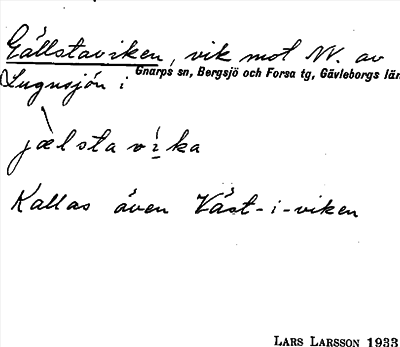 Gällstaviken, vik mot NV. av
Lugnsjön i Gnarps sn, Bergsjö och Forsa tg, Gävleborgs län
jælstavi̱ka
Kallas även Väst-i-viken
LARS LARSSON 1933